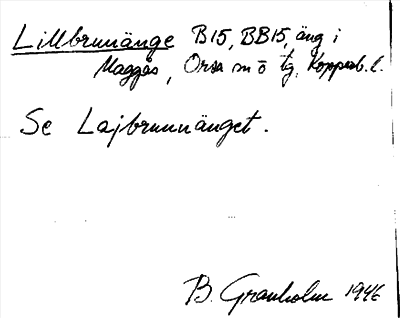 Lillbrunänge B15, BB15, äng i
Maggås, Orsa sn o tg, Kopparb. l.
Se Lajbrunnänget.
B. Granholm 1946